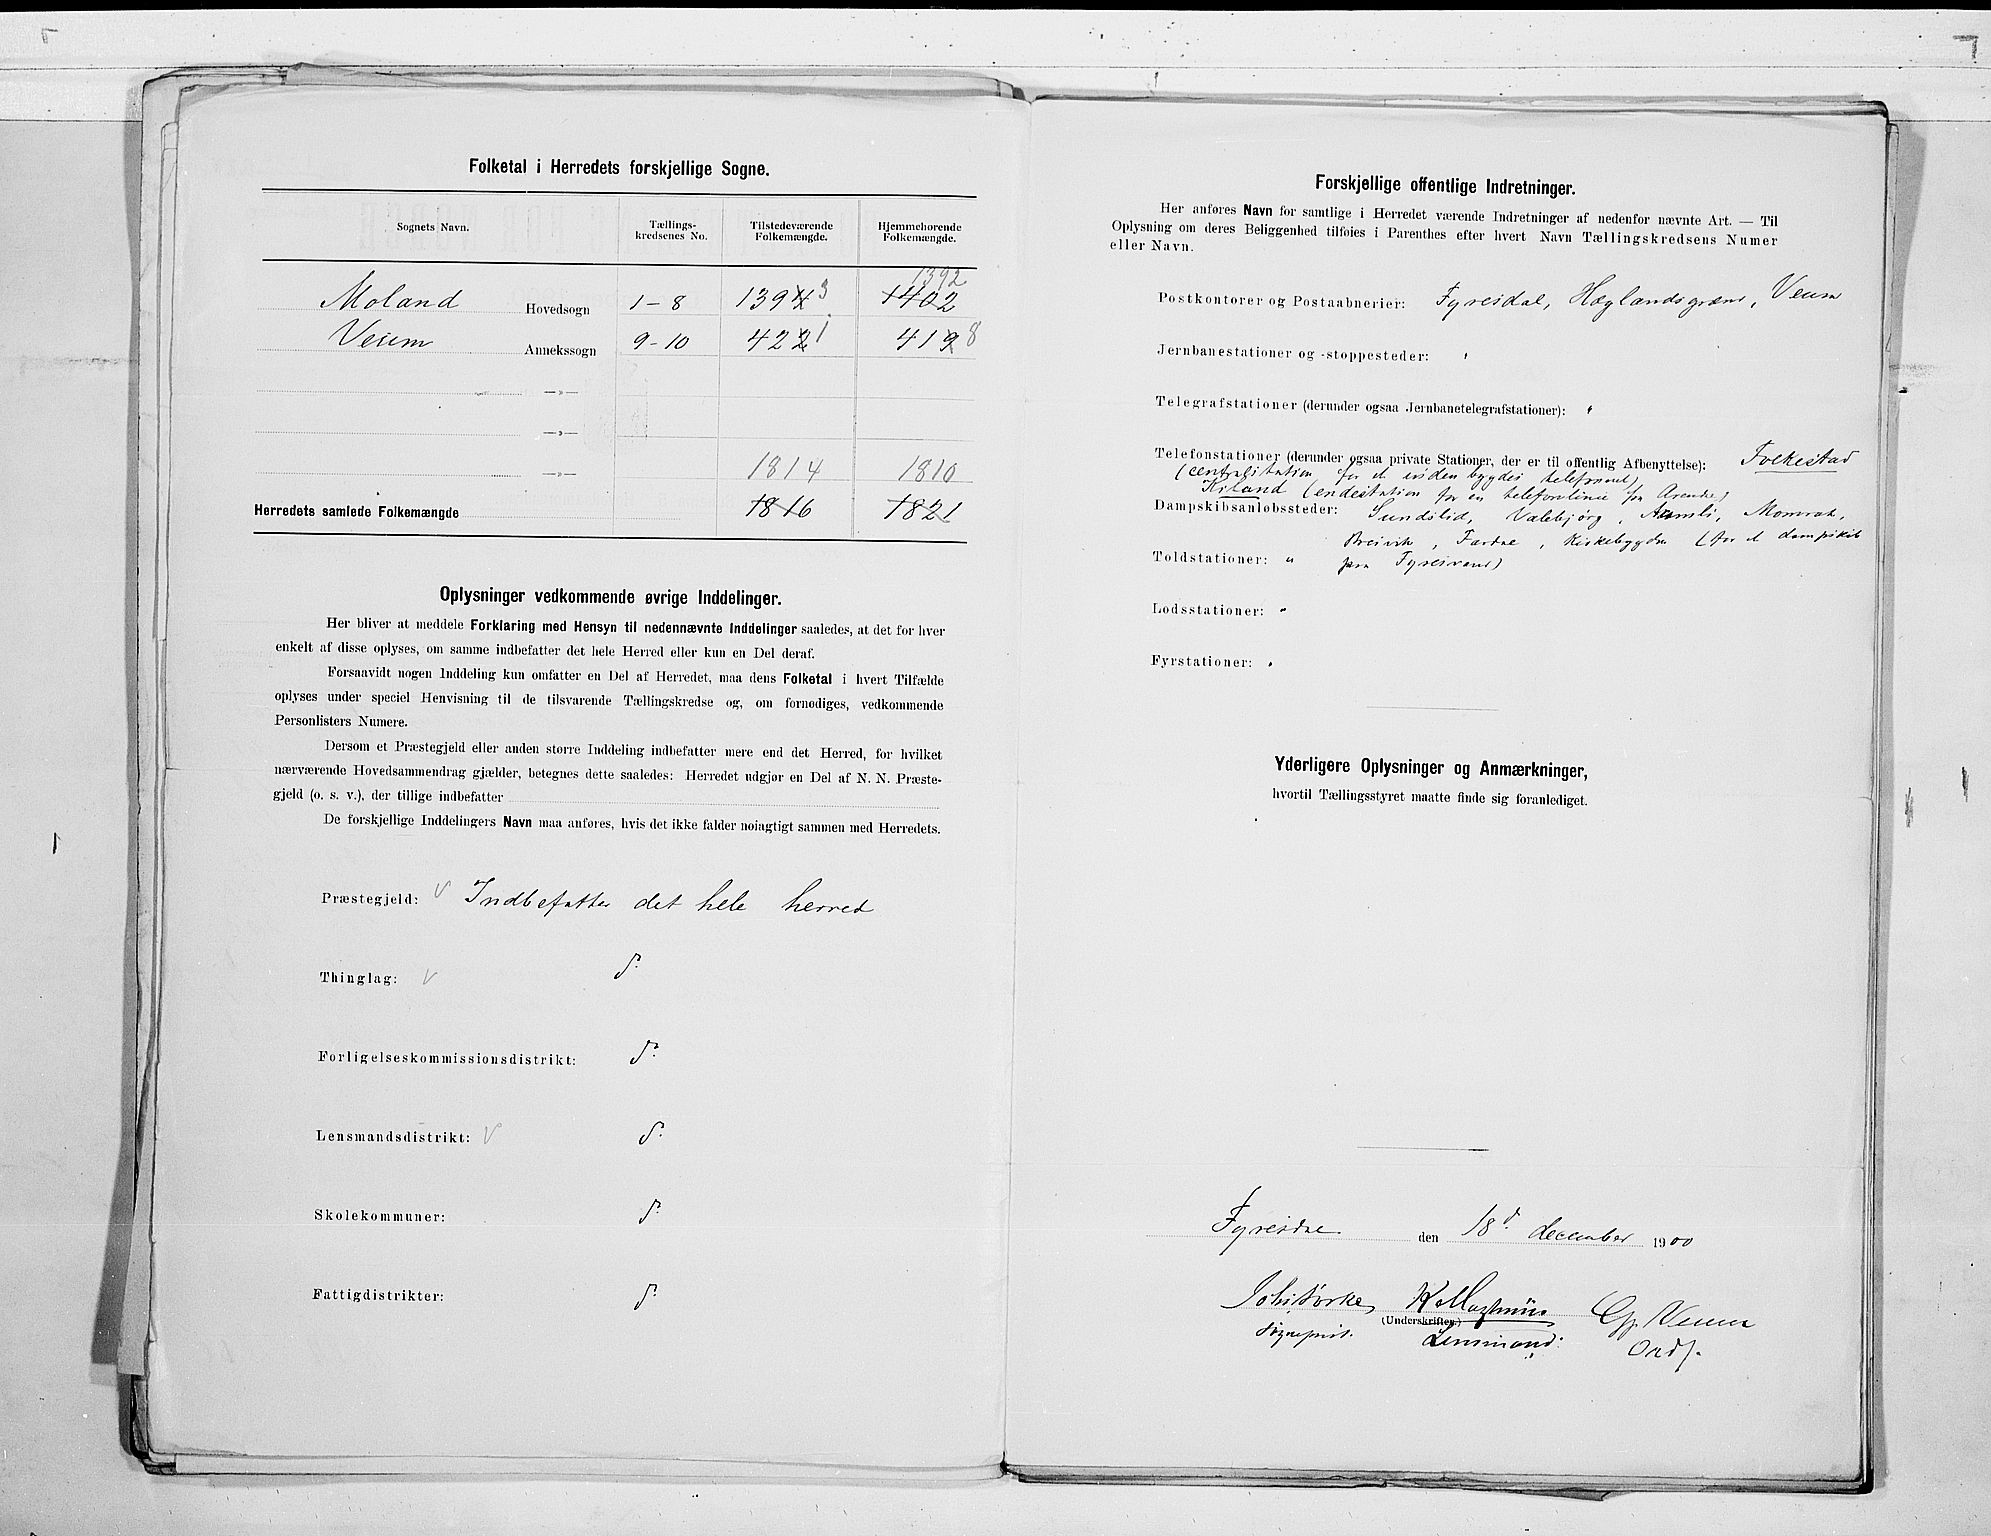 Folketal i Herredets forskjellige Sogne.
Sognets Navn.
Tællings-
kredsenes No.
Tilstedeværende
Folkemængde.
Hjemmehørende
Folkemængde.
1392
Moland Hovedsogn 1-8 1394 3 1402
Veum Annekssogn 9-10 422 1 419 8
—»—
—»—
—»— 1814 1810
Herredets samlede Folkemængde 1816 1821
Oplysninger vedkommende øvrige Inddelinger.
Her bliver at meddele Forklaring med Hensyn til nedennævnte Inddelinger saaledes, at det for hver
enkelt af disse oplyses, om samme indbefatter det hele Herred eller kun en Del deraf.
Forsaavidt nogen Inddeling kun omfatter en Del af Herredet, maa dens Folketal i hvert Tilfælde
oplyses under speciel Henvisning til de tilsvarende Tællingskredse og, om fornødiges, vedkommende
Personlisters Numere.
Dersom et Præstegjeld eller anden større Inddeling indbefatter mere end det Herred, for hvilket
nærværende Hovedsammendrag gjælder, betegnes dette saaledes: Herredet udgjør en Del af N. N. Præste-
gjeld (o. s. v.), der tillige indbefatter
De forskjellige Inddelingers Navn maa anføres, hvis det ikke falder nøiagtigt sammen med Herredets.
Præstegjeld: Indbefatter det hele herred
Thinglag:
Forligelseskommissionsdistrikt:
Lensmandsdistrikt:
Skolekommuner:
Fattigdistrikter:
Forskjellige offentlige Indretninger.
Her anføres Navn for samtlige i Herredet værende Indretninger af nedenfor nævnte Art. — Til
Oplysning om deres Beliggenhed tilføies i Parenthes efter hvert Navn Tællingskredsens Numer
eller Navn.
Postkontorer og Postaabnerier: Fyresdal, Høglandsgrænd, Veum
Jernbanestationer og -stoppesteder:
Telegrafstationer (derunder ogsaa Jernbanetelegrafstationer):
Telefonstationer (derunder ogsaa private Stationer, der er til offentlig Afbenyttelse): Folkestad
(centralstation for et indenbygdes telefonnet)
Kiland (endestation for en telefonlinie fra Arendal)
Dampskibsanløbssteder: Sundslid, Valebjørg, Aamli, Momrak,
Breivik, Fardal, Kirkebygden (for et dampskib
Toldstationer: " paa Fyresvand)
Lodsstationer: "
Fyrstationer:
Yderligere Oplysninger og Anmærkninger,
hvortil Tællingsstyret maatte finde sig foranlediget.
Fyresdal den 18d december 1900
Veum
(Underskrifter.)
Sogneprest. Lensmand. Ordf.